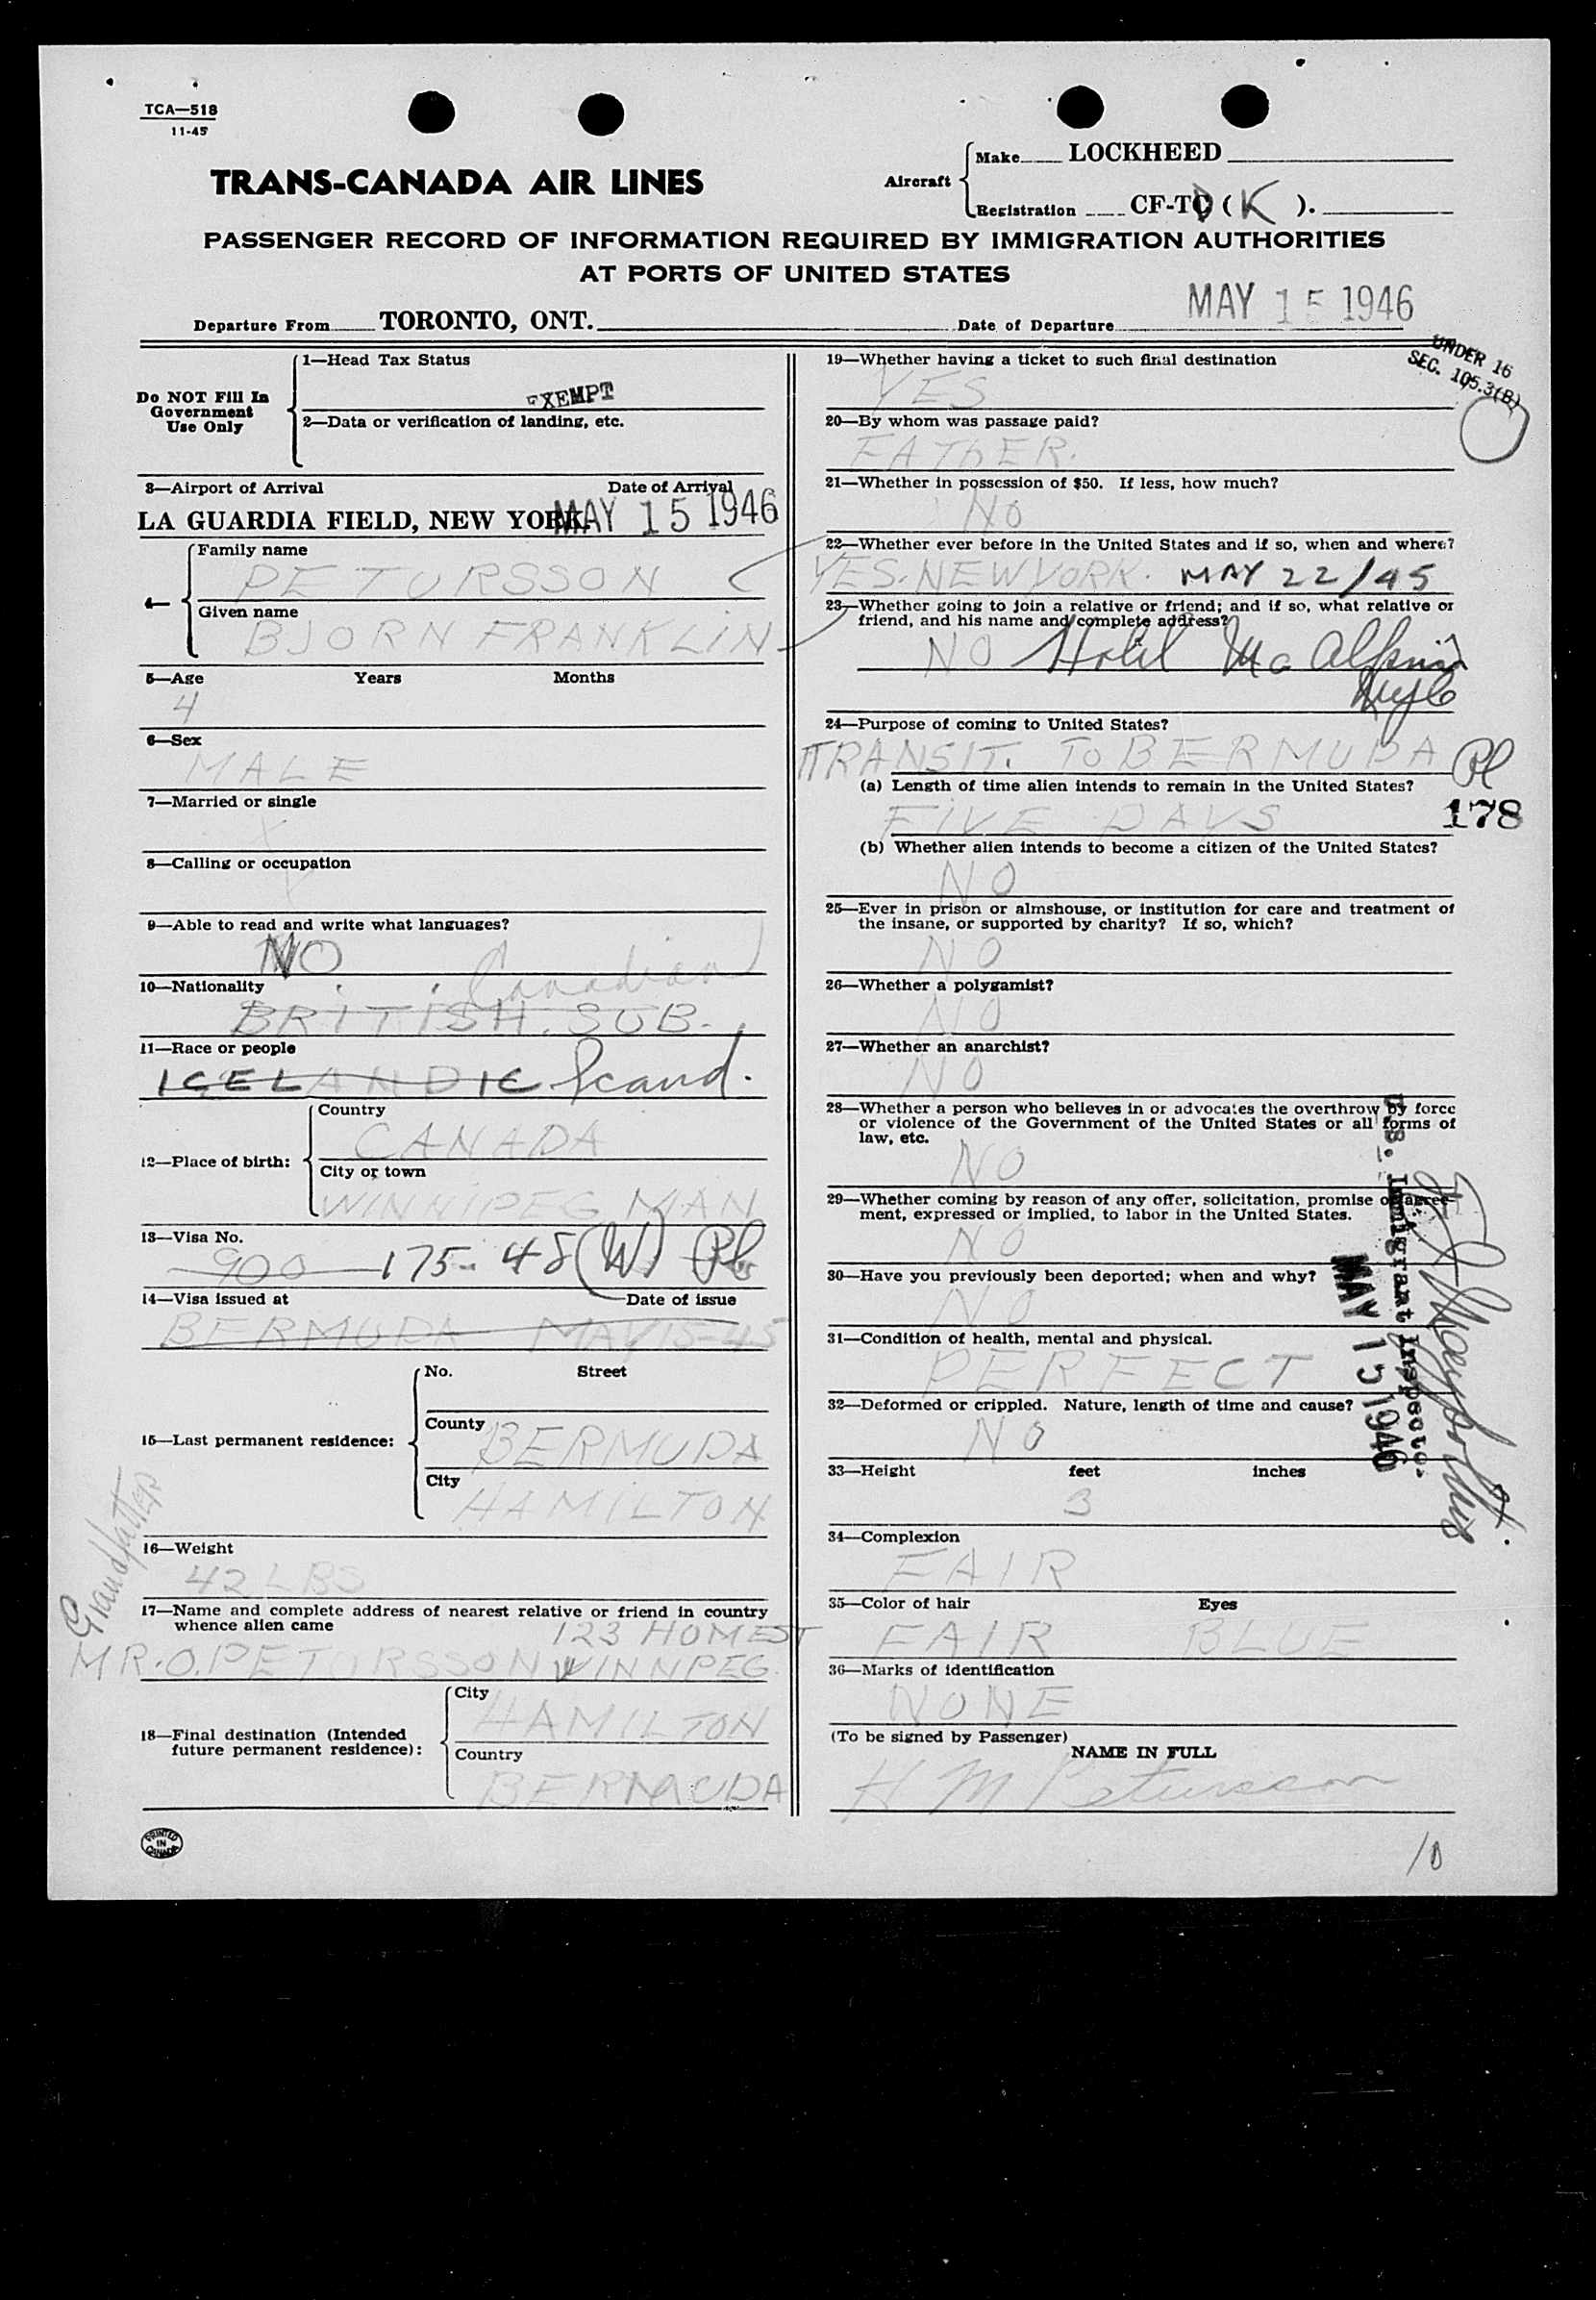 TCA—518
11-45
TRANS-CANADA AIR LINES
Aircraft
Make LOCKHEED
Registration CF-TC (K).
PASSENGER RECORD OF INFORMATION REQUIRED BY IMMIGRATION AUTHORITIES
AT PORTS OF UNITED STATES
Departure From TORONTO, ONT. Date of Departure MAY 15 1946
Do NOT Fill In
Government
Use Only
1—Head Tax Status
EXEMPT
2—Data or verification of landing, etc.
3—Airport of Arrival Date of Arrival
LA GUARDIA FIELD, NEW YORK. MAY 15 1946
4—
Family name
PETURSSON
Given name
BJORN FRANKLIN
5—Age Years Months
4
6—Sex
MALE
7—Married or single
X
8—Calling or occupation
X
9—Able to read and write what languages?
NO
10—Nationality Canadian
BRITISH. SUB.
11—Race or people
ICELANDIC Scand.
12—Place of birth:
Country
CANADA
City or town
WINNIPEG MAN
13—Visa No.
900 175-48 (W)
14—Visa issued at Date of issue
BERMUDA MAY 15-45
15—Last permanent residence:
No. Street
County BERMUDA
City
HAMILTON
16—Weight
42 LBS
17—Name and complete address of nearest relative or friend in country
whence alien came
123 HOME ST
MR. O. PETURSSON WINNPEG.
Grandfather
18—Final destination (Intended
future permanent residence):
City
HAMILTON
Country
BERMUDA
PRINTED
IN
CANADA
19—Whether having a ticket to such final destination
YES
UNDER 16
SEC. 105.3(B)
20—By whom was passage paid?
FATHER.
21—Whether in possession of $50. If less, how much?
NO
22—Whether ever before in the United States and if so, when and where?
YES. NEW YORK. MAY 22/45
23—Whether going to join a relative or friend; and if so, what relative or
friend, and his name and complete address?
NO Hotel McAlpin
NYC
24—Purpose of coming to United States?
TRANSIT. TO BERMUDA
(a) Length of time alien intends to remain in the United States?
FIVE DAYS
178
(b) Whether alien intends to become a citizen of the United States?
NO
25—Ever in prison or almshouse, or institution for care and treatment of
the insane, or supported by charity? If so, which?
NO
26—Whether a polygamist?
NO
27—Whether an anarchist?
NO
28—Whether a person who believes in or advocates the overthrow by force
or violence of the Government of the United States or all forms of
law, etc.
NO
29—Whether coming by reason of any offer, solicitation, promise or agree-
ment, expressed or implied, to labor in the United States.
NO
30—Have you previously been deported; when and why?
NO
31—Condition of health, mental and physical.
PERFECT
32—Deformed or crippled. Nature, length of time and cause?
NO
U.S. Immigrant Inspector
MAY 15 1946
33—Height feet inches
3
34—Complexion
FAIR
35—Color of hair Eyes
FAIR BLUE
36—Marks of identification
NONE
(To be signed by Passenger)
NAME IN FULL
H M Petursson
10